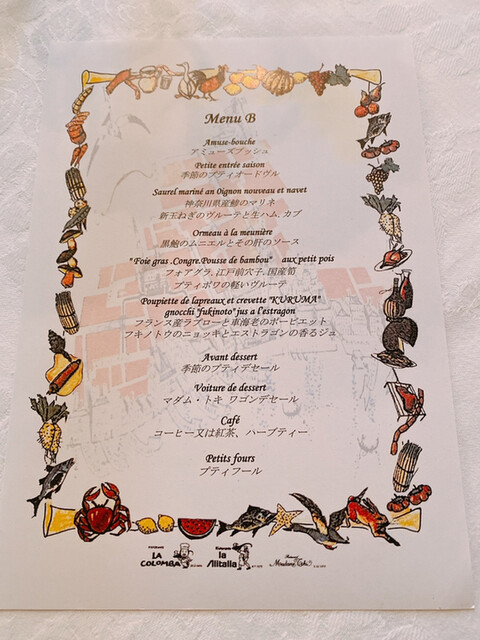 Menu B
Amuse-bouche
アミューズブッシュ
Petite entrée saison
季節のプティオードヴル
Saurel mariné an Oignon nouveau et navet
神奈川県産鯵のマリネ
新玉ねぎのヴルーテと生ハム、カブ
Ormeau à la meunière
黒鮑のムニエルとその肝のソース
"Foie gras .Congre.Pousse de bambou" aux petit pois
フォアグラ、江戸前穴子、国産筍
プティポワの軽いヴルーテ
Poupiette de lapreaux et crevette "KURUMA"
gnocchi "fukinoto" jus a l'estragon
フランス産ラプローと車海老のポーピエット
フキノトウのニョッキとエストラゴンの香るジュ
Avant dessert
季節のプティデセール
Voiture de dessert
マダム・トキ ワゴンデセール
Café
コーヒー又は紅茶、ハーブティー
Petits fours
プティフール
LA COLOMBA
la Alitalia
Madame Toki